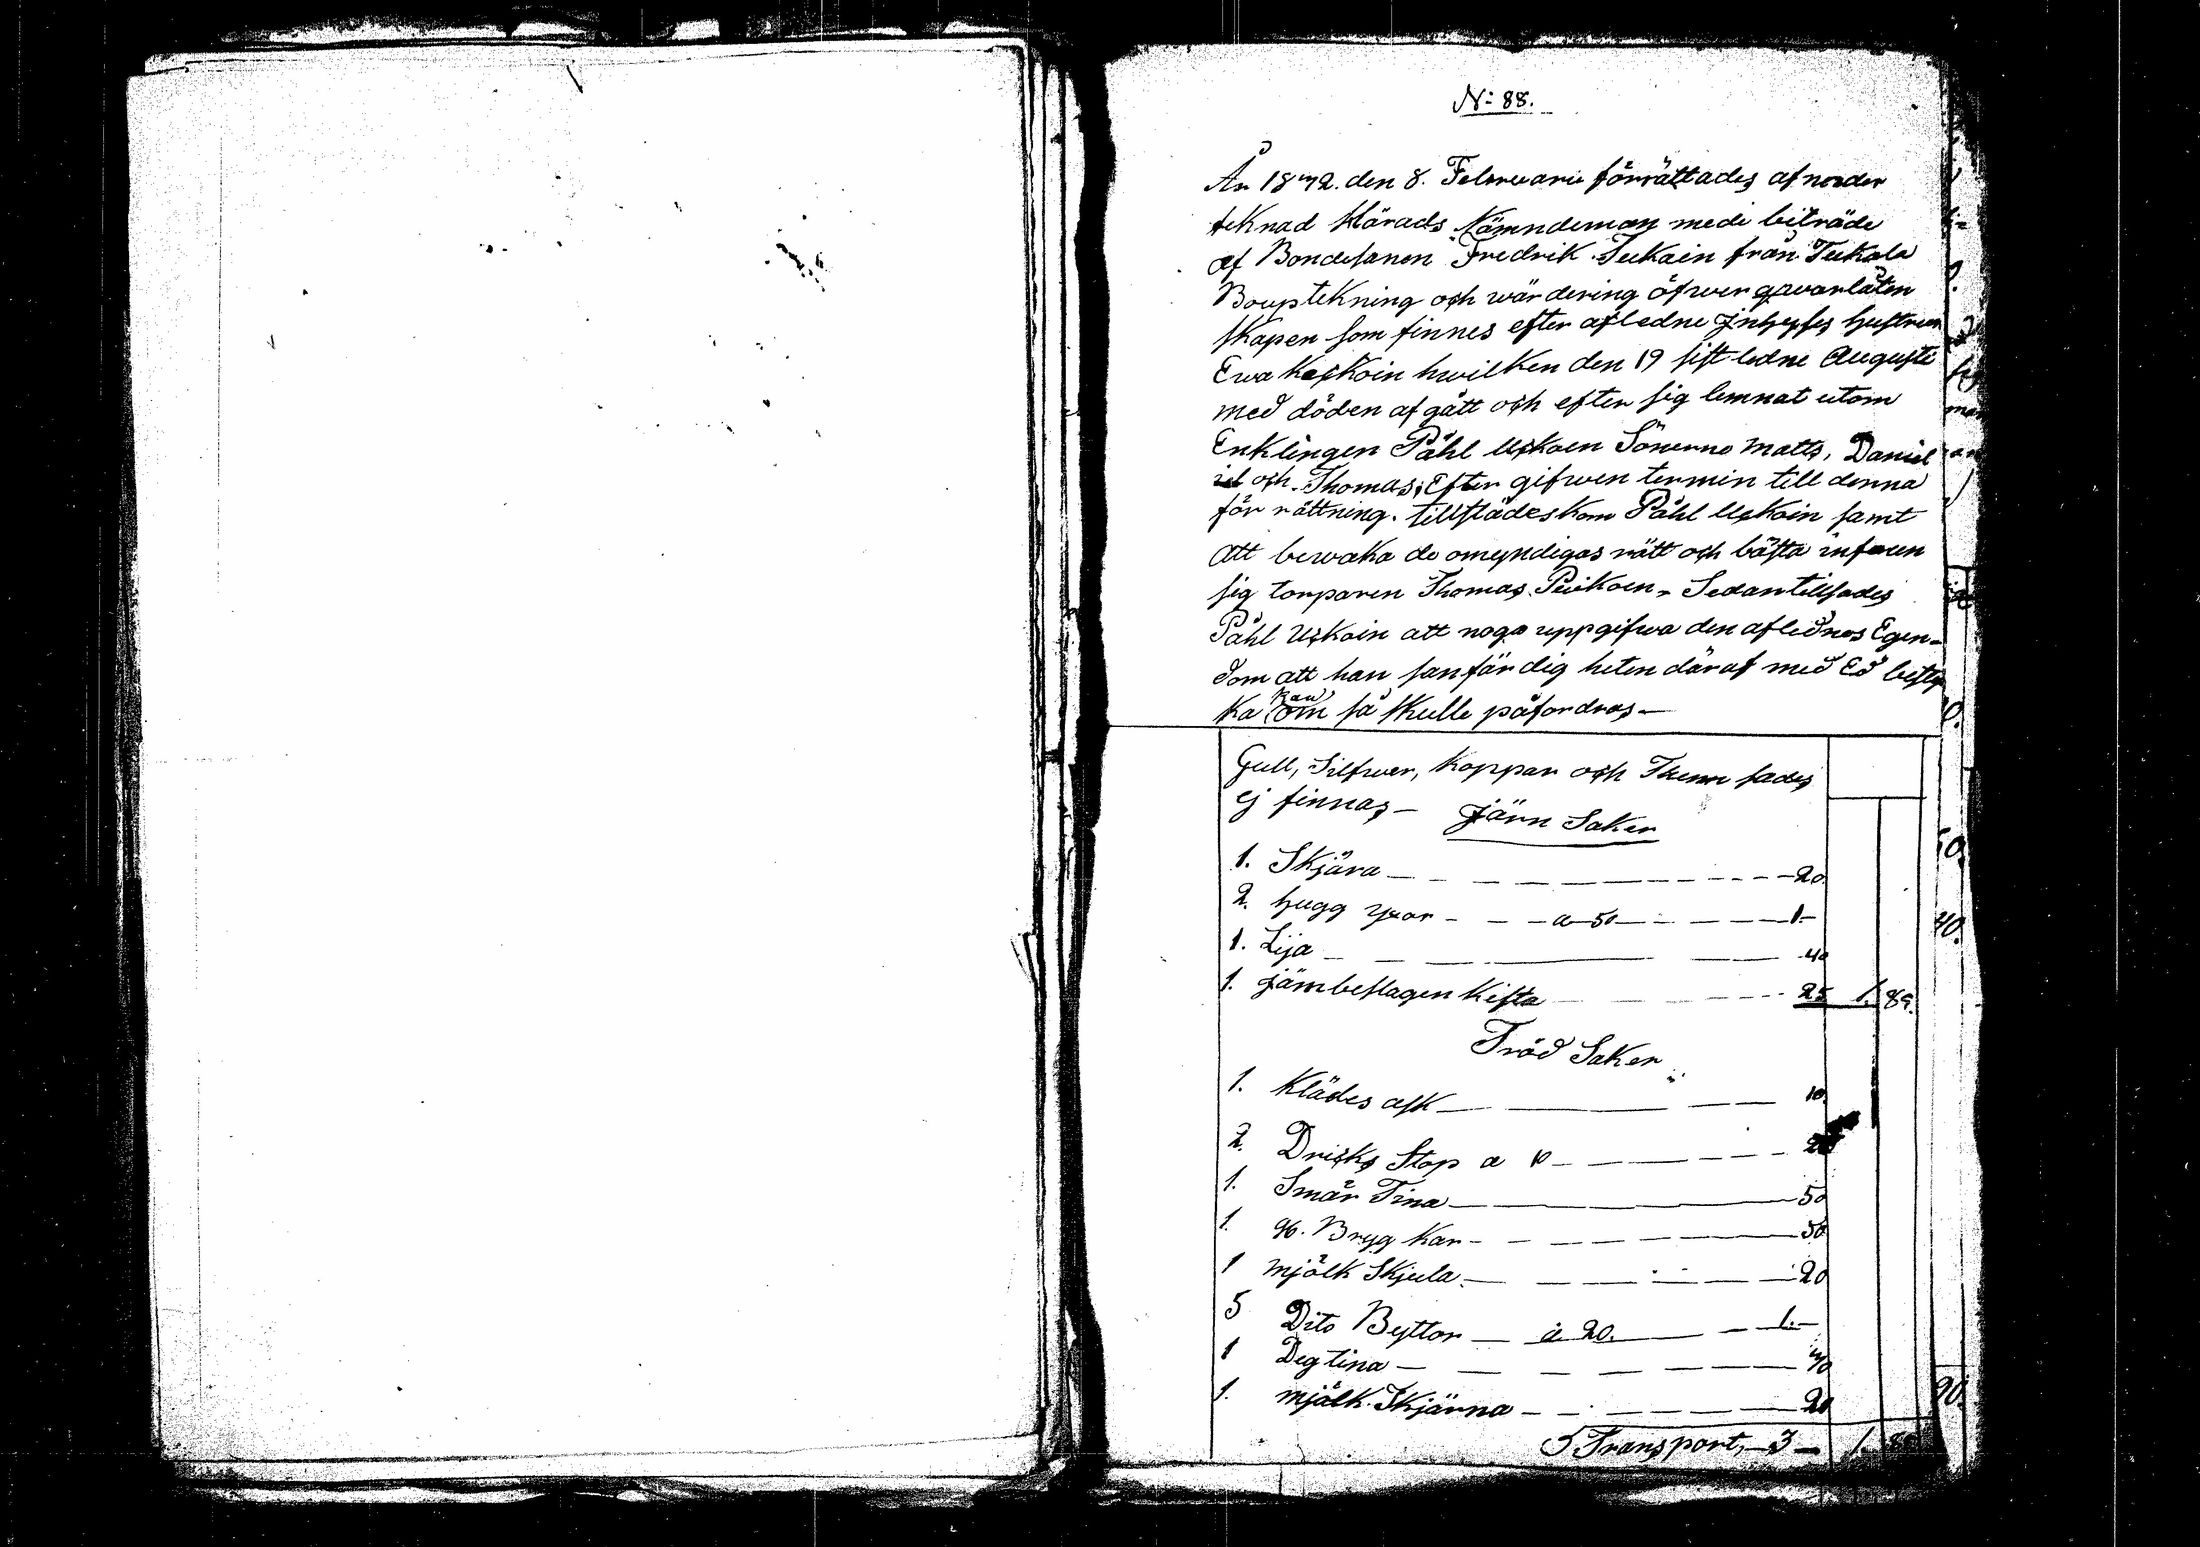 N: 88.
År 1872. den 8. Februarii förrättades af under
teknad Härads Nämndeman mede biträde
af Bondesonen Fredrik Tukain från Tukala
Boupstekning och wärdering öfwer qwarlåten
skapen som finnes efter afledne jnhyses hustrun
Ewa Keskoin hwilken den 19 sistledne Augusti
med döden afgått och efter sig lemnat utom
Enklingen Påhl Uskoen Sönerne Matts, Daniel
och Thomas; Efter gifwen termin till denna
för rättning. tillstädeskom Påhl Uskoin samt
att bewaka de omyndigas rätt och bästa infann
sig torparen Thomas Pevkoen. Sedan tillsades
Påhl Uskoin att noga uppgifwa den aflednes Egen-
dom att han sanfärdig heten däraf med Ed besty
ka kan om så skulle påfordras—
Gull, Silfwer, Koppar och Thenn sades
ej finnas— Järn Saker
1. Skjära — 20.
2. hugg yxor — a 50 — 1.—
1. Lija — 40
1. Järnbeslagen Kista — 25 1. 85.
Träd Saker
1. Klädes ask — 10.
2. Dricks Stop a 10 — 20
1. Smör Tina — 50
1. gb. Bryg Kar — 50
1 Mjölk Skjula — 20
5 Dito Byttor — à 20. — 1.—
1 Deg tina — 40
1. Mjölk Skjärna — 20
Transport, — 3 — 1. 85